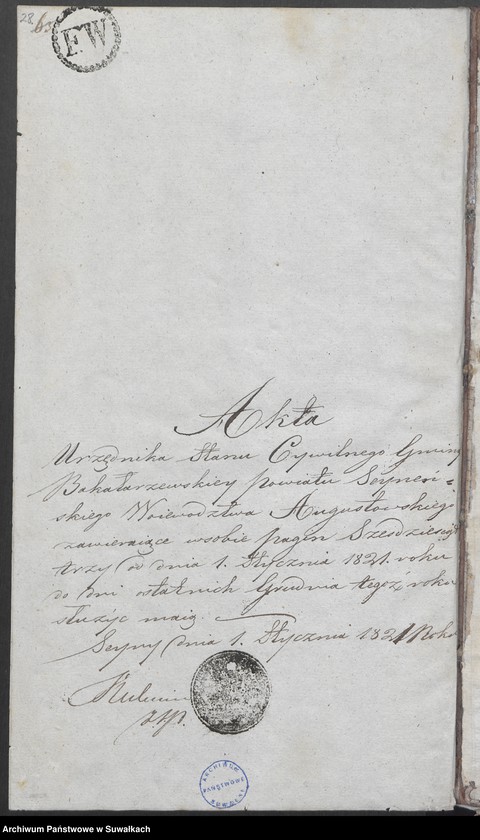 28.
6.
FW
Akta
Urzędnika Stanu Cywilnego Gminy
Bakałarzewskiey Powiatu Seyneń=
skiego Woiewodztwa Augustowskiego
zawieraiące w sobie pagin Szesdziesiąt
trzy od dnia 1. Stycznia 1821. roku
do dni ostatnich Grudnia tegoż roku
służyć maią.
Seyny dnia 1. Stycznia 1821 Roku
ARCHIWUM
PAŃSTWOWE
SUWAŁKI
Archiwum Państwowe w Suwałkach